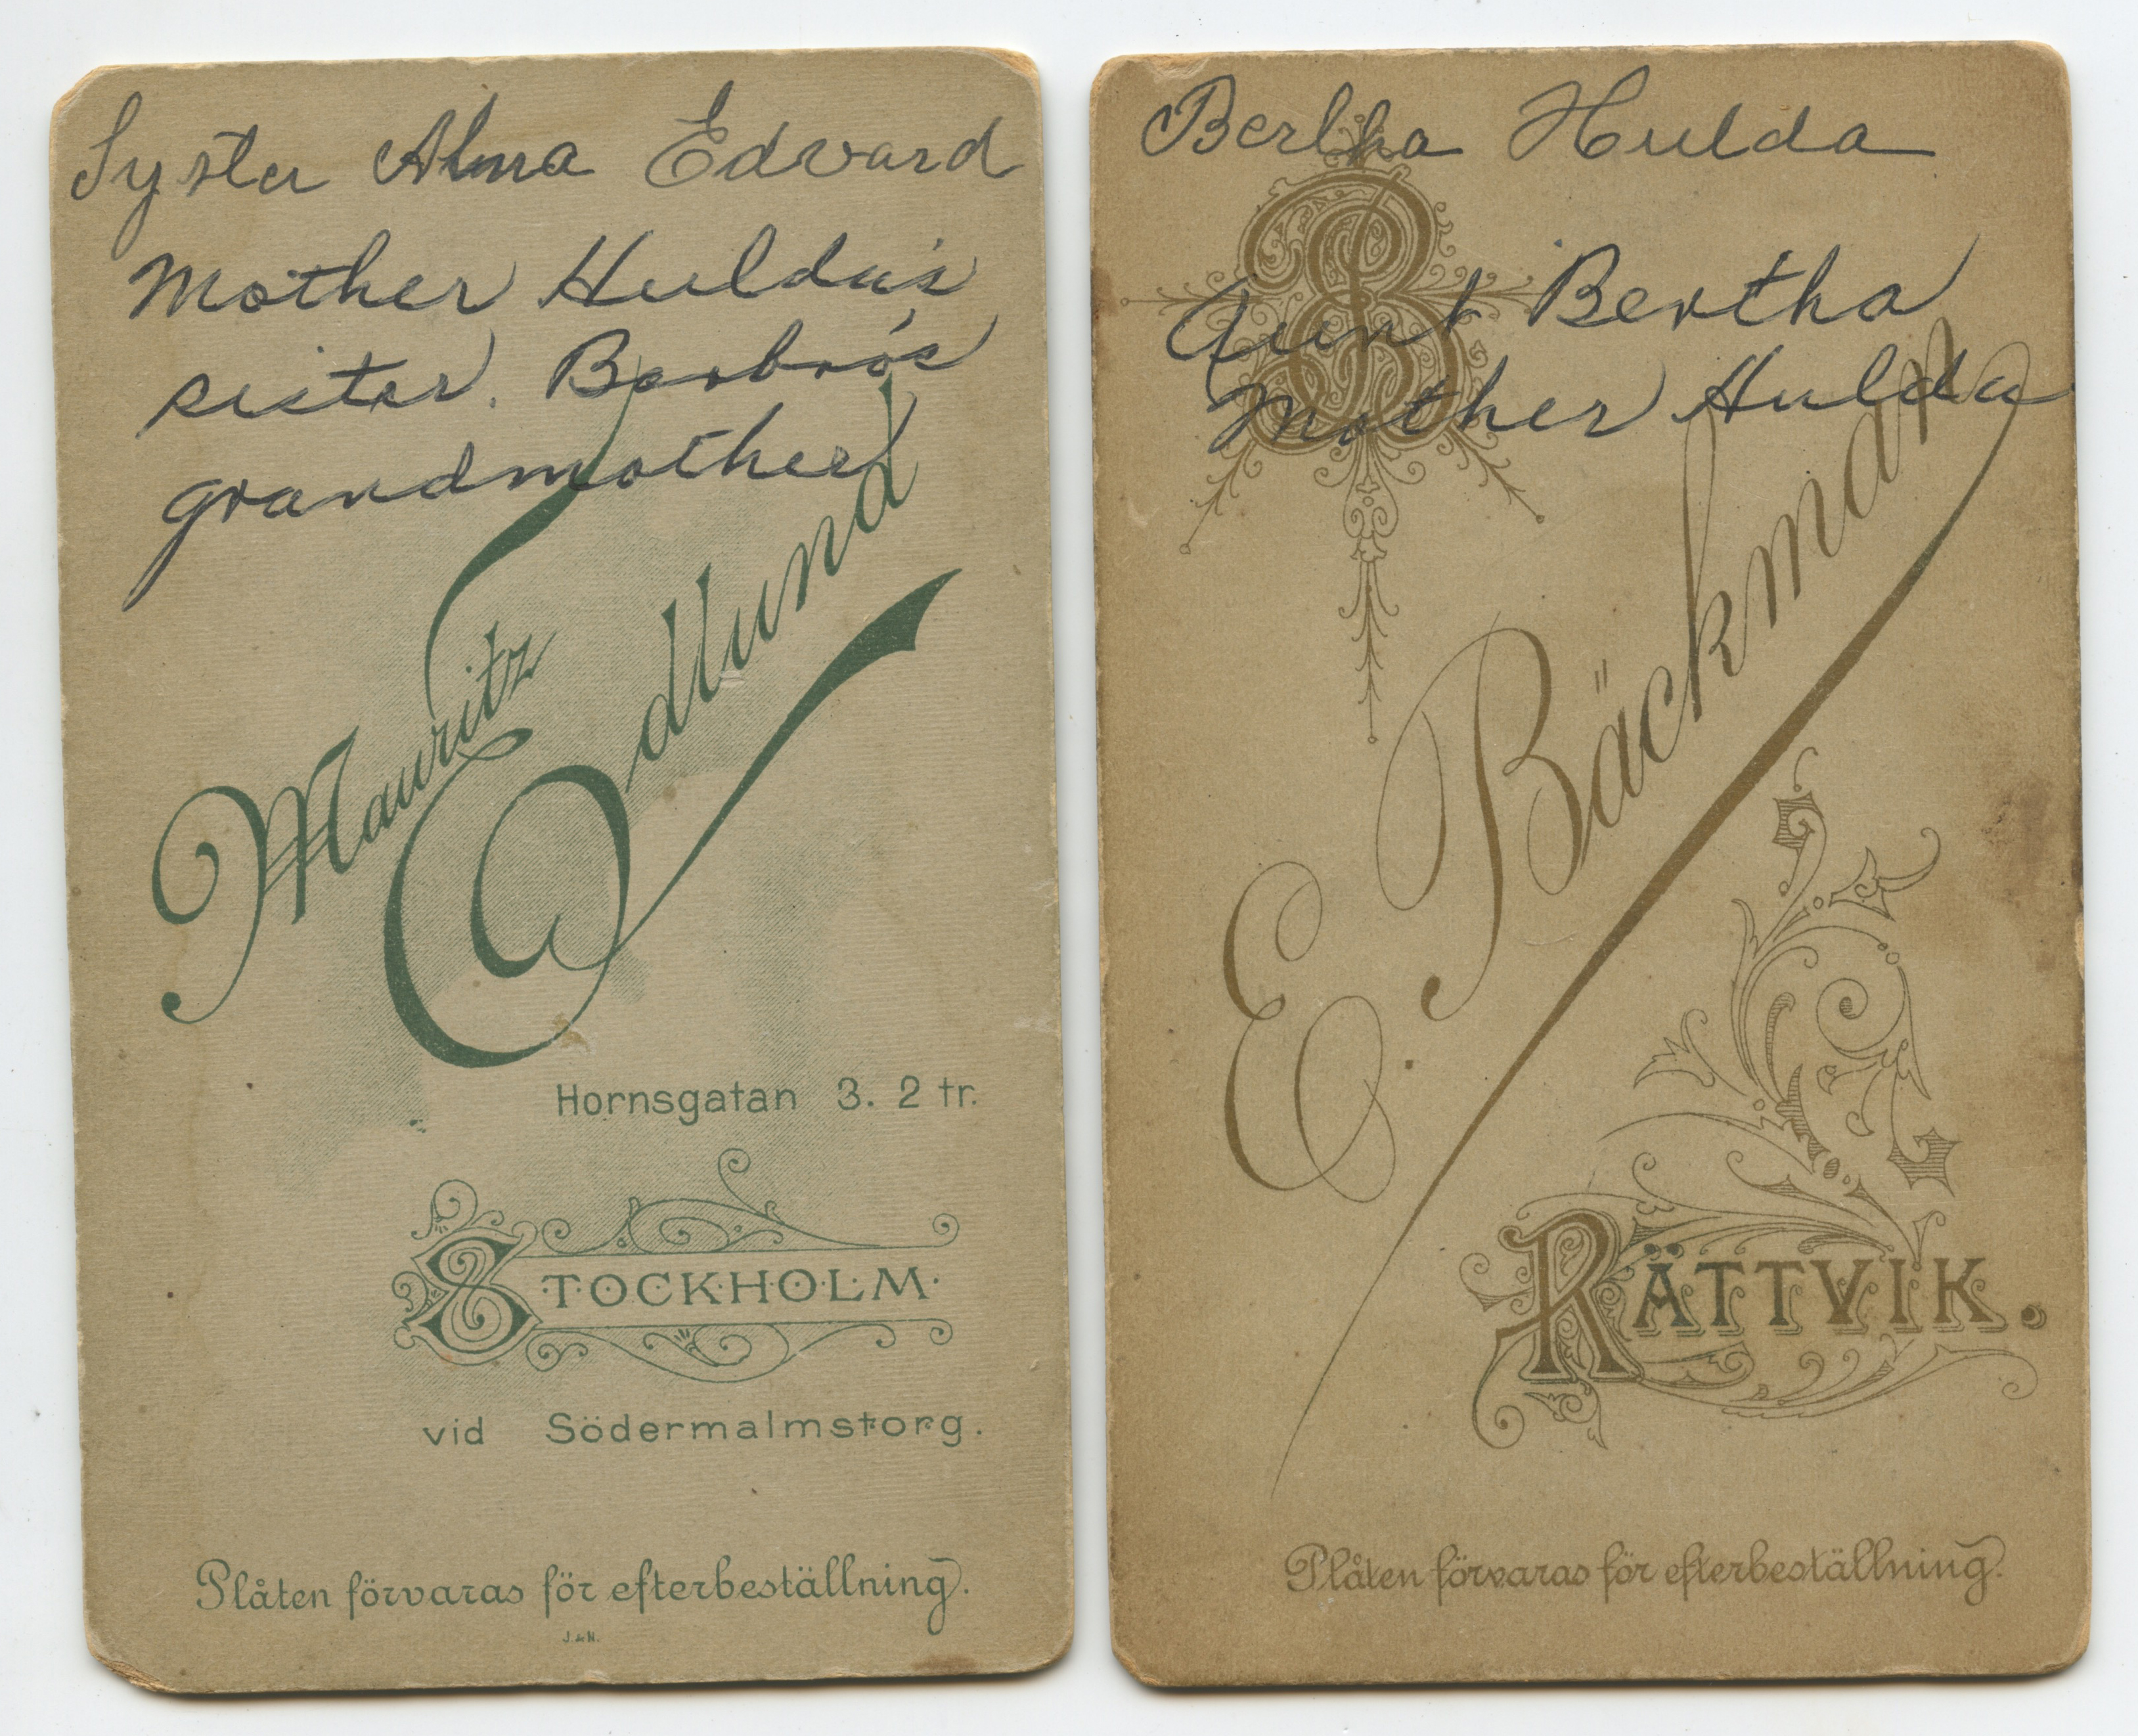 Syster Alma Edvard
Mother Hulda's
sister. Barbro's
grandmother
Mauritz
Edlund
Hornsgatan 3. 2 tr.
STOCKHOLM.
vid Södermalmstorg.
Plåten förvaras för efterbeställning.
J. & N.
Bertha Hulda
B
Aunt Bertha
Mother Hulda
E. Bäckman
RÄTTVIK.
Plåten förvaras för efterbeställning.